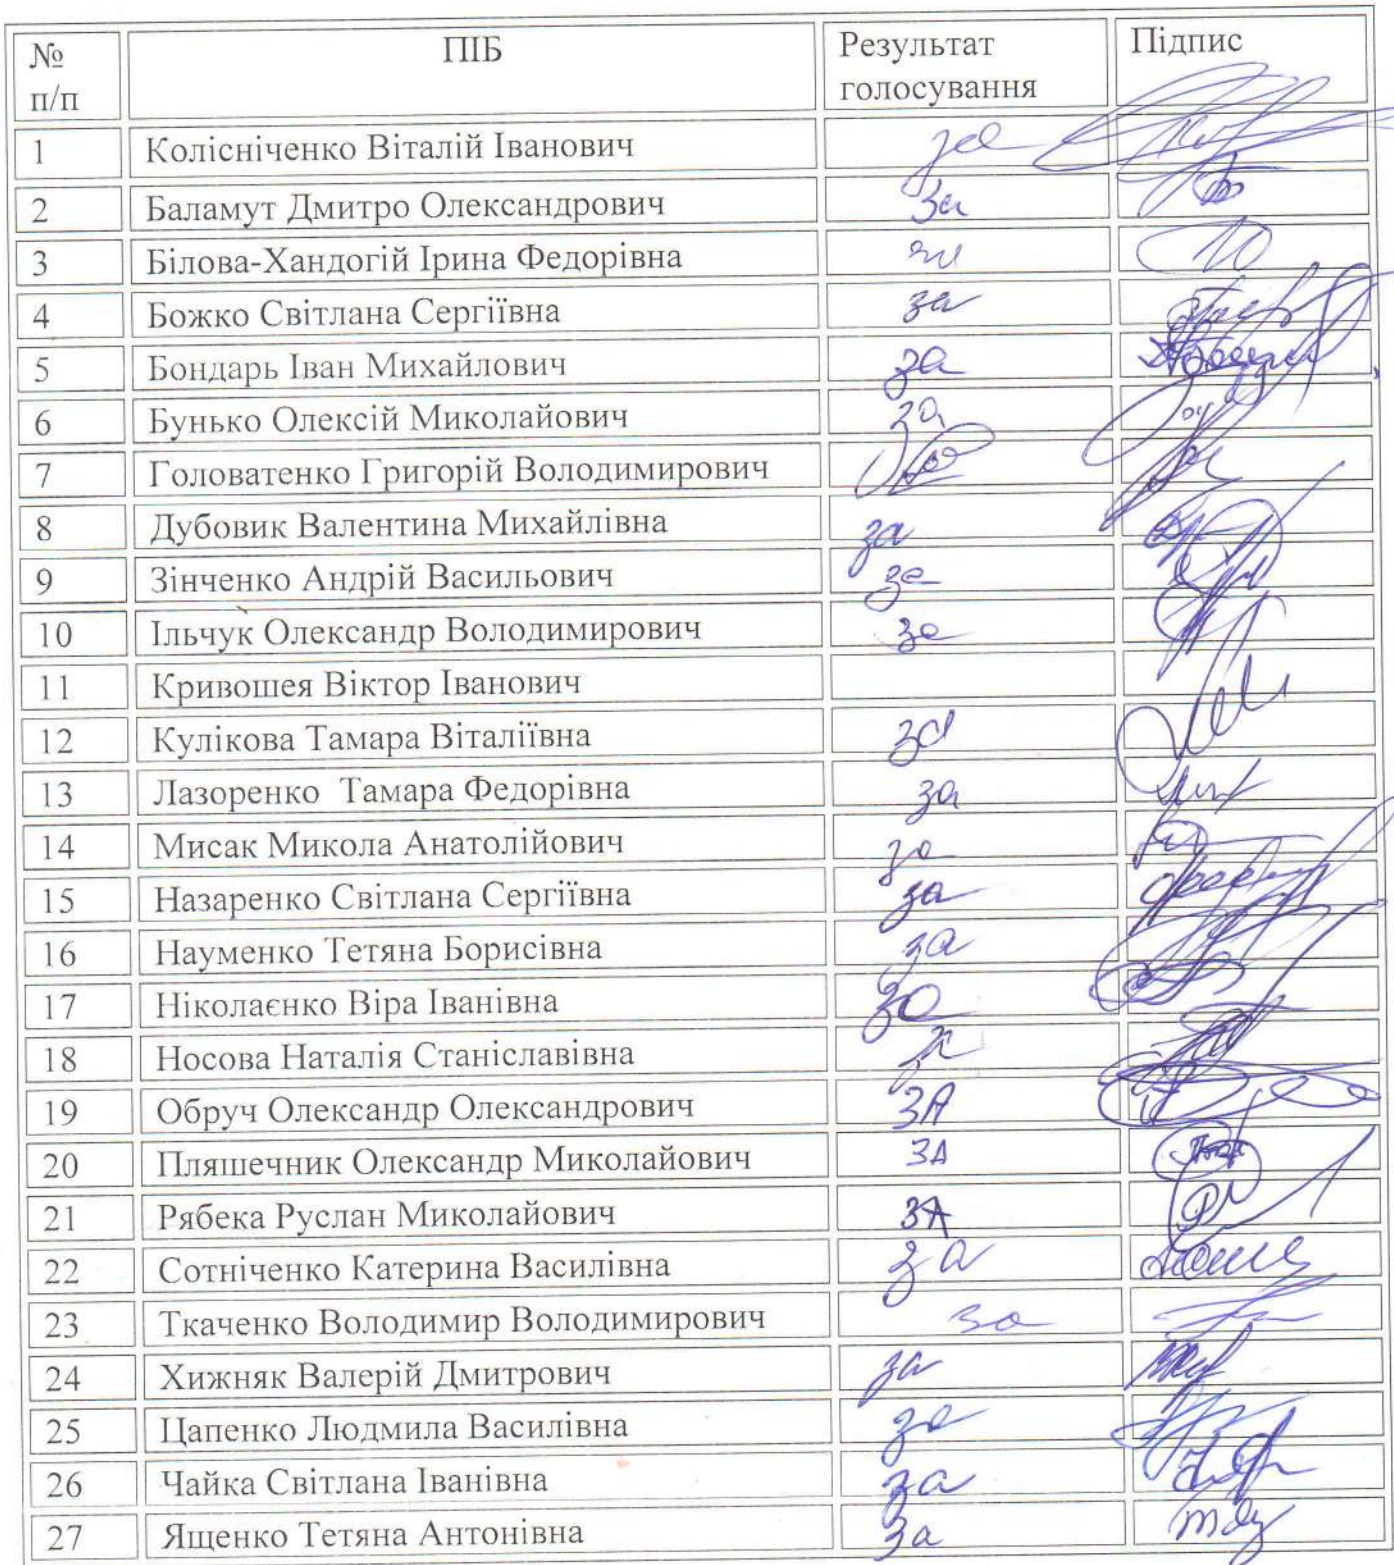 № п/п ПІБ Результат голосування Підпис
1 Колісніченко Віталій Іванович за
2 Баламут Дмитро Олександрович за
3 Білова-Хандогій Ірина Федорівна за
4 Божко Світлана Сергіївна за
5 Бондарь Іван Михайлович за
6 Бунько Олексій Миколайович за
7 Головатенко Григорій Володимирович
8 Дубовик Валентина Михайлівна за
9 Зінченко Андрій Васильович за
10 Ільчук Олександр Володимирович за
11 Кривошея Віктор Іванович
12 Кулікова Тамара Віталіївна за
13 Лазоренко Тамара Федорівна за
14 Мисак Микола Анатолійович за
15 Назаренко Світлана Сергіївна за
16 Науменко Тетяна Борисівна за
17 Ніколаєнко Віра Іванівна за
18 Носова Наталія Станіславівна
19 Обруч Олександр Олександрович ЗА
20 Пляшечник Олександр Миколайович ЗА
21 Рябека Руслан Миколайович ЗА
22 Сотніченко Катерина Василівна за
23 Ткаченко Володимир Володимирович за
24 Хижняк Валерій Дмитрович за
25 Цапенко Людмила Василівна за
26 Чайка Світлана Іванівна за
27 Ященко Тетяна Антонівна за